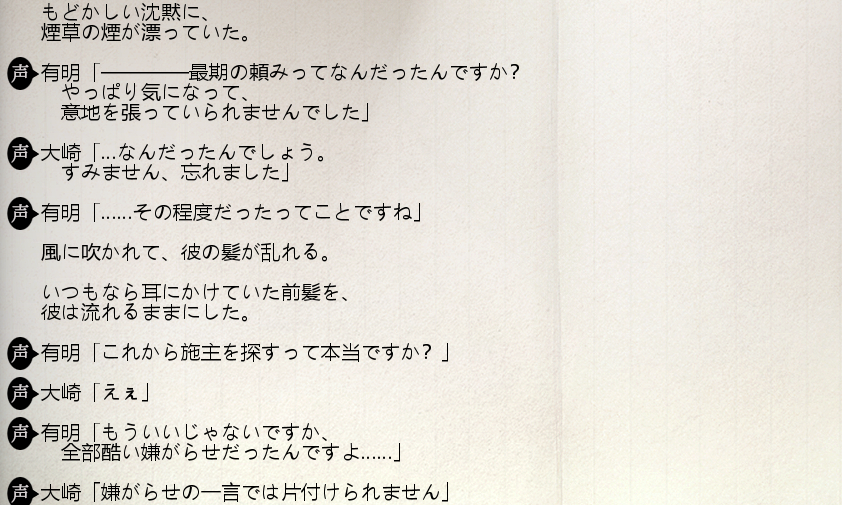 もどかしい沈黙に、
煙草の煙が漂っていた。
声 有明「―――――最期の頼みってなんだったんですか？
やっぱり気になって、
意地を張っていられませんでした」
声 大崎「…なんだったんでしょう。
すみません、忘れました」
声 有明「……その程度だったってことですね」
風に吹かれて、彼の髪が乱れる。
いつもなら耳にかけていた前髪を、
彼は流れるままにした。
声 有明「これから施主を探すって本当ですか？」
声 大崎「えぇ」
声 有明「もういいじゃないですか、
全部酷い嫌がらせだったんですよ……」
声 大崎「嫌がらせの一言では片付けられません」